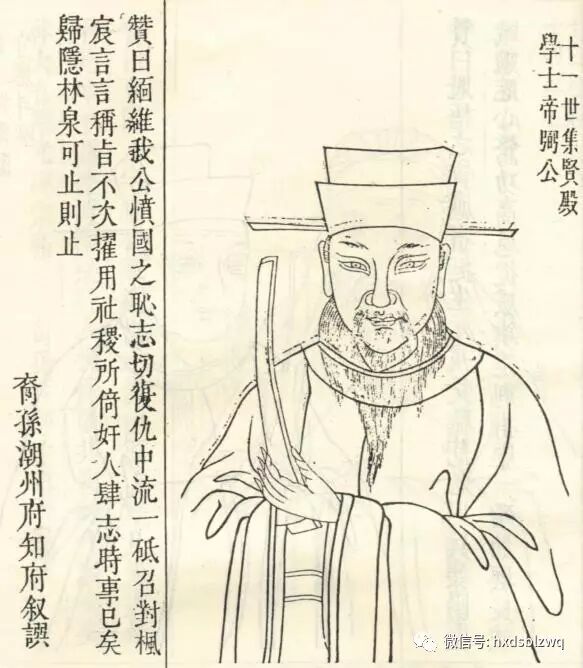 十一世集賢殿
學士帝弼公
贊曰緬維我公憤國之恥志切復仇中流一砥召對楓
宸言言稱旨不次擢用社稷所倚奸人肆志時事已矣
歸隱林泉可止則止
裔孫潮州府知府叙譔
微信号: hxdsblzwq